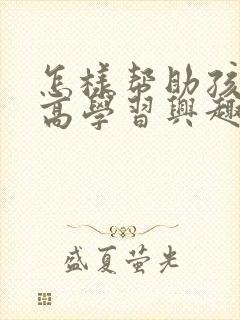 怎樣帮助孩
高學習興趣
盛夏萤光